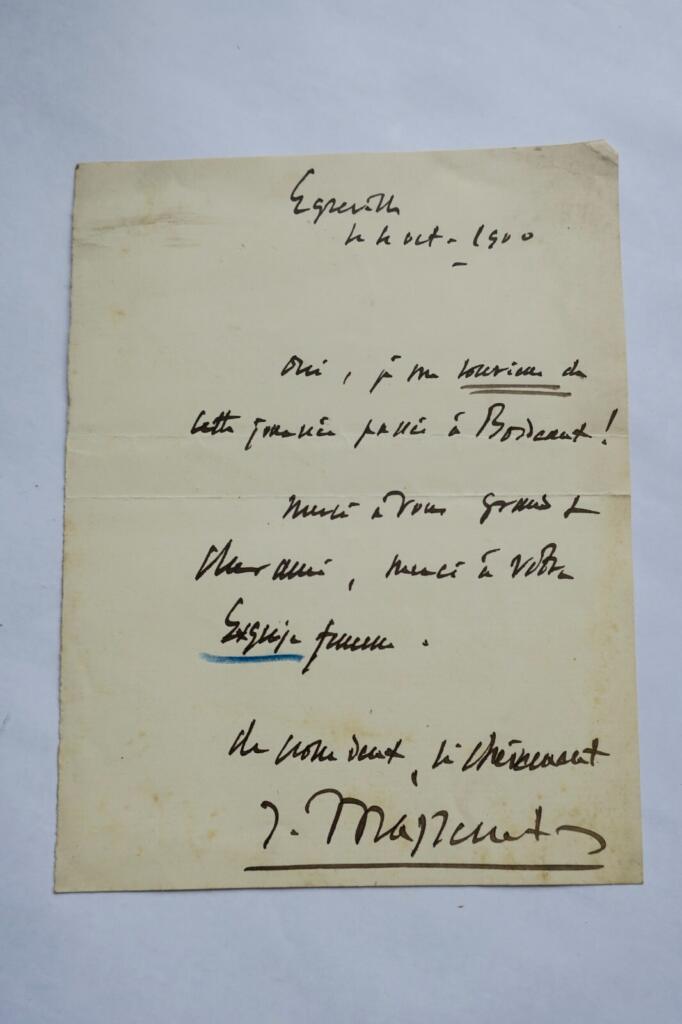 Egreville
le 4 oct. 1900
Oui, je me souviens de
cette journée passée à Bordeaux !
merci à vous grand &
cher ami, merci à votre
Exquise femme.
de nous deux, si chèrement
J. Massenet